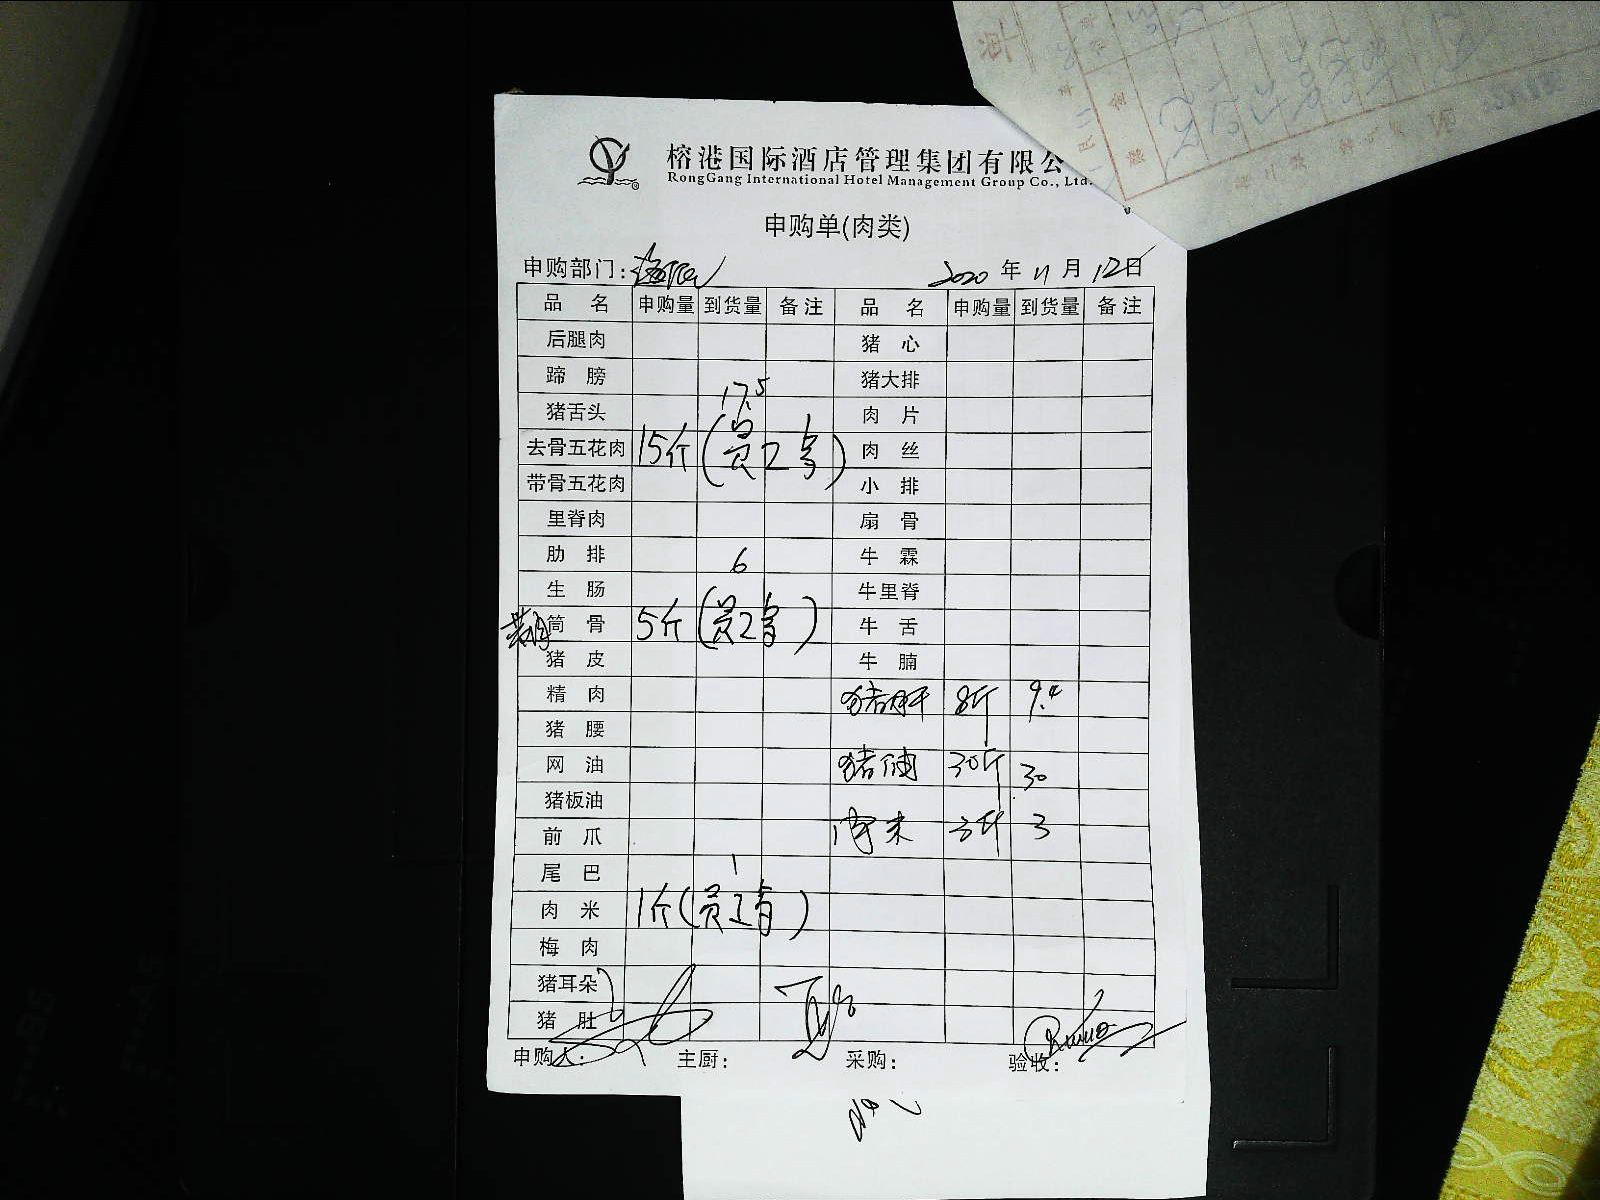 榕港国际酒店管理集团有限公
RongGang International Hotel Management Group Co., Ltd.
申购单(肉类)
申购部门: 2020 年 11 月 12日
品 名 申购量 到货量 备注 品 名 申购量 到货量 备注
后腿肉 猪 心
蹄 膀 猪大排
17.5
猪舌头 肉 片
去骨五花肉 15斤 (员工餐) 肉 丝
带骨五花肉 小 排
里脊肉 扇 骨
肋 排 6 牛 霖
生 肠 牛里脊
筒 骨 5斤 (员工餐) 牛 舌
猪 皮 牛 腩
精 肉 猪肝 8斤 9.4
猪 腰
网 油 猪 30斤 30
猪板油
前 爪 肉末 3斤 3
尾 巴 1
肉 米 1斤 (员工餐)
梅 肉
猪耳朵
猪 肚
申购人: 主厨: 采购: 验收: